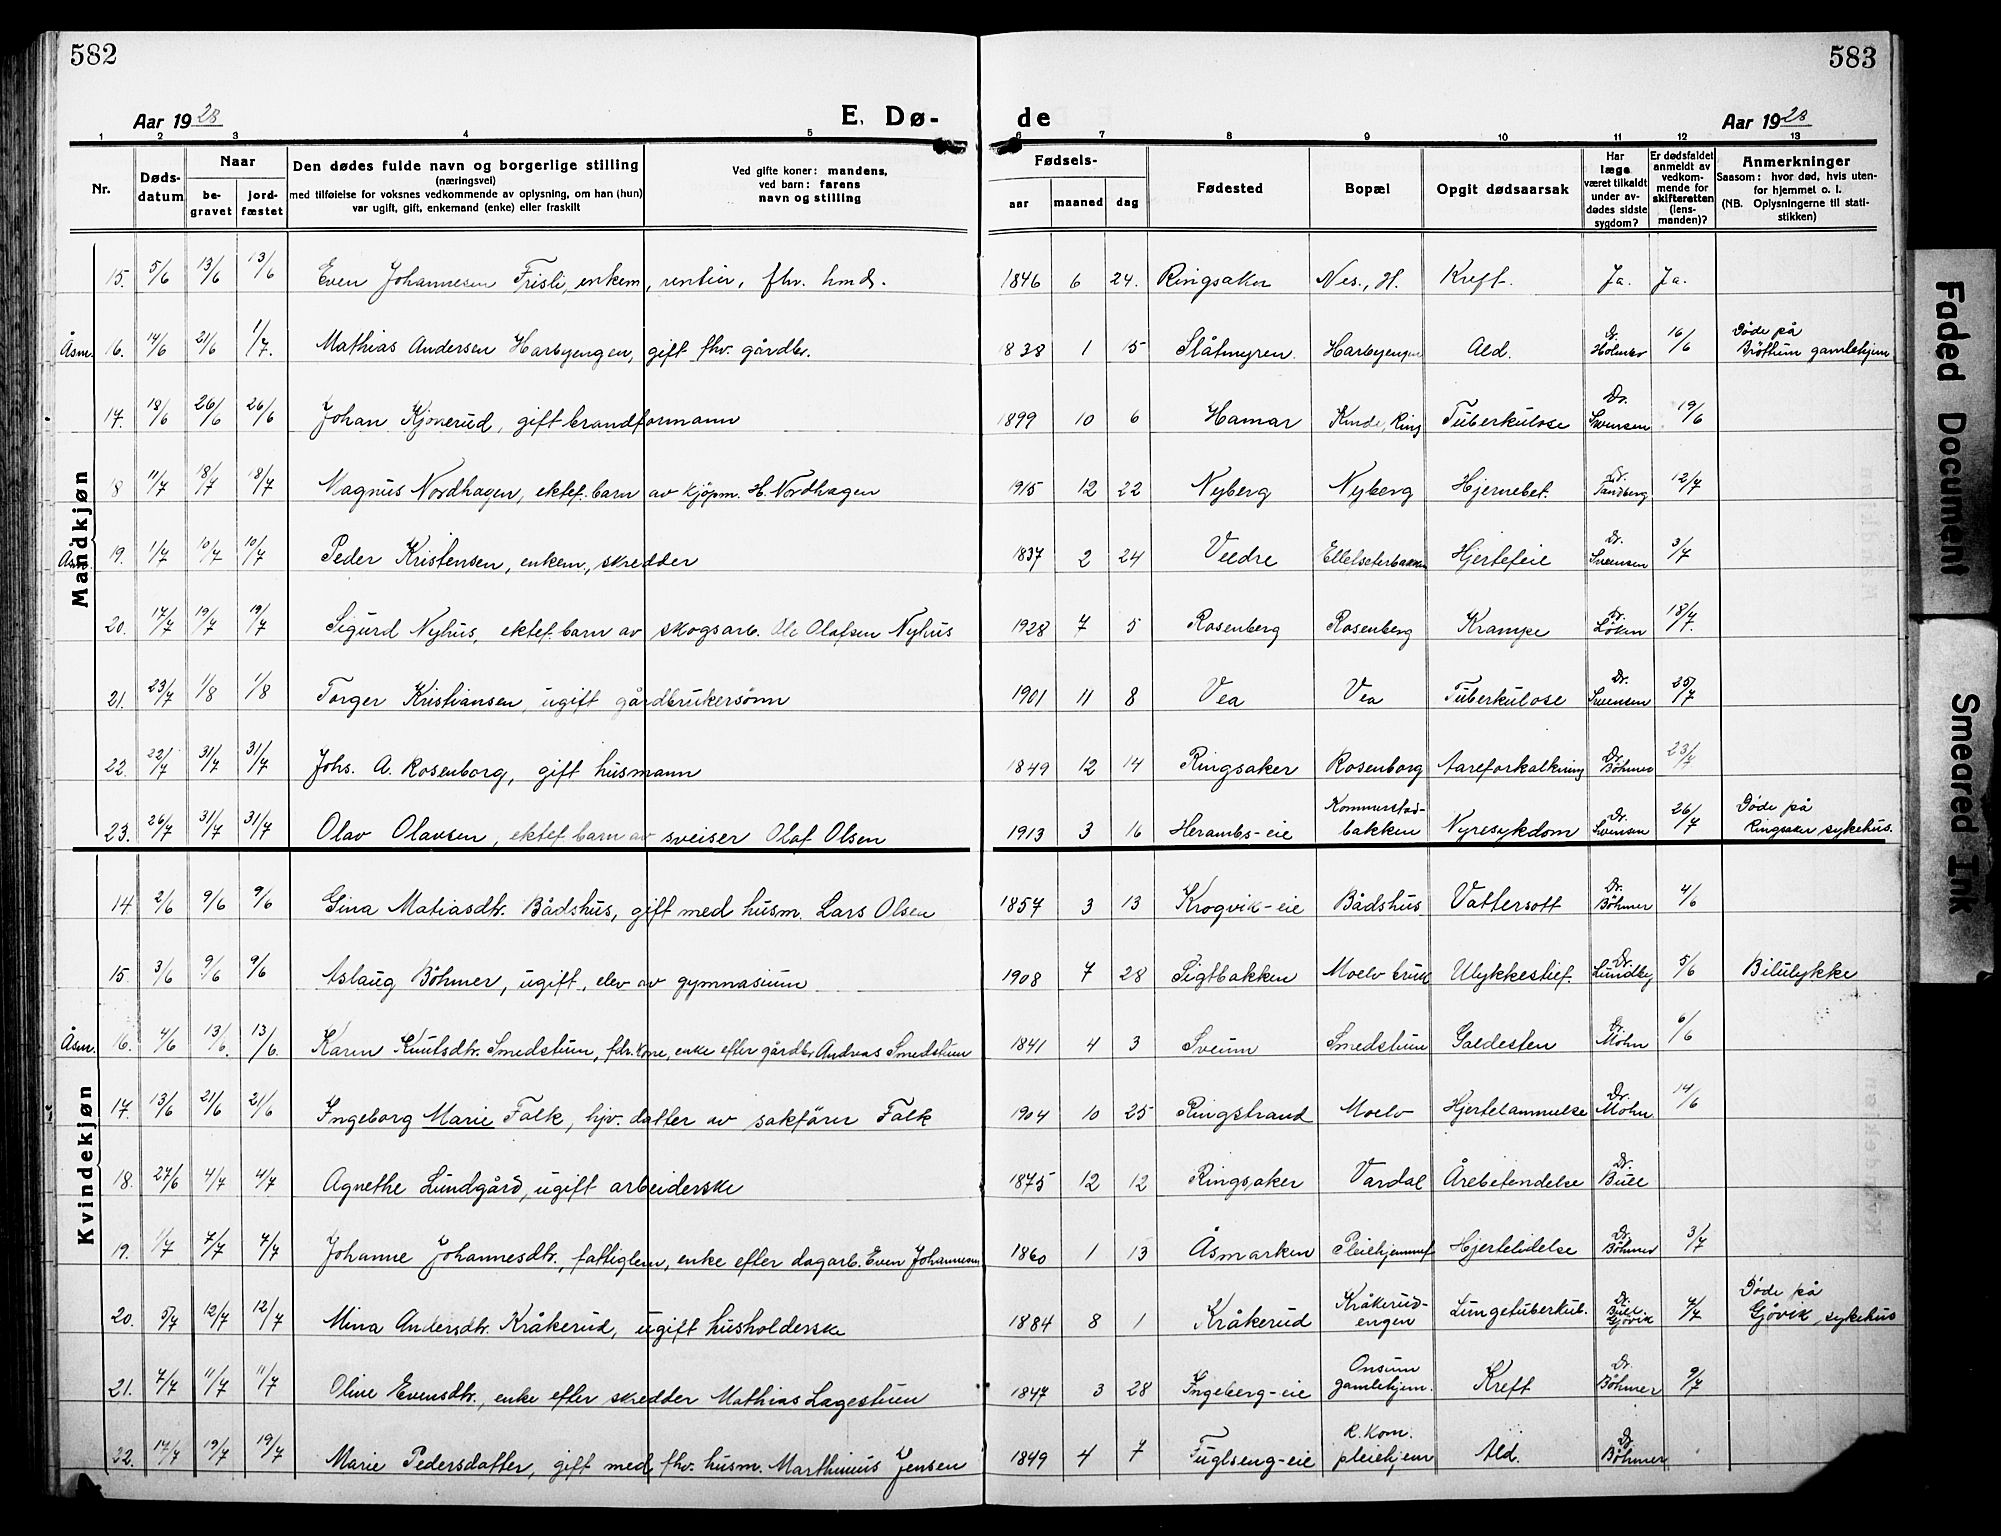 582
583
Aar 1928
E. Dø-
de
Aar 1928
1 2 3 4 5 6 7 8 9 10 11 12 13
Nr.
Døds-
datum
Naar
be-
gravet
jord-
fæstet
Den dødes fulde navn og borgerlige stilling
(næringsvei)
med tilføielse for voksnes vedkommende av oplysning, om han (hun)
var ugift, gift, enkemand (enke) eller fraskilt
Ved gifte koner: mandens,
ved barn: farens
navn og stilling
Fødsels-
aar maaned dag
Fødested
Bopæl
Opgit dødsaarsak
Har
læge
været tilkaldt
under av-
dødes sidste
sygdom?
Er dødsfaldet
anmeldt av
vedkom-
mende for
skifteretten
(lens-
manden)?
Anmerkninger
Saasom: hvor død, hvis uten-
for hjemmet o. l.
(NB. Oplysningerne til stati-
stikken)
Mandkjøn
15. 5/6 13/6 13/6 Even Johannesen Frisli, enkem, rentier, fhv. hmd. 1846 6 24. Ringsaker Nes, H. Kreft. Ja. Ja.
Åsm. 16. 14/6 21/6 1/7. Mathias Andersen Harbyengen, gift fhv. gårdbr. 1838 1 15 Slåtmyren. Harbyengen Ald. Dr. Holmbo 16/6 Döde på Bröttum gamlehjem
17. 18/6 26/6 26/6 Johan Kjonerud, gift brandformann 1899 10 6 Hamar Kinde, Ring Tuberkulose Dr. Svensen 19/6
18 11/7 18/7 18/7 Magnus Nordhagen, ektef. barn av kjöpm. H. Nordhagen 1915 12 22 Nyberg Nyberg Hjernebet. Dr. Sandberg 12/7
19. 1/7 10/7 10/7 Peder Kristensen, enkem., skredder 1837 2 24 Veldre Ellelseterbakken Hjertefeil Dr. Svensen 3/7
20. 17/7 19/7 19/7 Sigurd Nyhus, ektef. barn av skogsarb. Ole Olafsen Nyhus 1928 7 5 Rosenberg Rosenberg Krampe Dr. Löken 18/7.
21. 23/7 1/8 1/8 Torger Kristiansen, ugift gårdbrukersönn 1901 11 8 Vea Vea Tuberkulose Dr. Svensen 25/7
22. 22/7 31/7 31/7 Johs. A. Rosenborg, gift husmann 1849 12 14 Ringsaker Rosenborg Aareforkalkning Dr. Böhmer 23/7
23. 26/7 31/7 31/7 Olav Olavsen, ektef. barn av sveiser Olaf Olsen 1913 3 16 Herambs-eie Kommerstadbakken Nyresykdom Dr. Svensen 26/7 Döde på Ringsaker sykehus.
Kvindekjøn
14. 2/6 9/6 9/6 Gina Matiasdtr. Bådshus, gift med husm. Lars Olsen 1857 3 13 Krogvik-eie Bådshus Vattersott Dr. Böhmer 4/6
15. 3/6 9/6 9/6 Aslaug Böhmer, ugift, elev av gymnasium 1908 7 28 Sigtbakken Moelv bruk Ulykkestilf. Dr. Lundby 5/6 Bilulykke
Åsm. 16. 4/6 13/6. 13/6. Karen Knutsdtr. Smedstuen, fdr. kone, enke efter gårdbr. Andreas Smedstuen 1841 4 3 Sveum Smedstuen Galdesten Dr. Mohn 6/6
17. 13/6 21/6 21/6 Ingeborg Marie Falk, hjv. datter av sakförer Falk 1904 10 25 Ringstrand Moelv Hjertelammelse Dr. Mohn 14/6
18. 27/6 4/7 4/7 Agnethe Lundgård, ugift arbeiderske 1875 12 12 Ringsaker Vardal Årebetendelse Dr. Bull
19. 1/7 7/7 7/7 Johanne Johannesdtr., fattiglem, enke efter dagarb. Even Johannesen 1860 1 13 Åsmarken Pleiehjemmet Hjertelidelse Dr. Böhmer 3/7
20. 5/7 12/7 12/7 Mina Andersdtr. Kråkerud, ugift husholderske 1884 8 1 Kråkerud Kråkerud-engen Lungetuberkul. Dr. Bull Gjövik 7/7 Döde på Gjövik sykehus
21. 7/7 11/7 11/7 Oline Evensdtr., enke efter skredder Mathias Lagestuen 1847 3 28 Ingeberg-eie Onsum gamlehjem. Kreft Dr. Böhmer 9/7
22. 17/7 19/7 19/7 Marie Pedersdatter, gift med fhv. husm. Marthinius Jensen 1849 4 7 Fuglseng-eie R. Kom. pleiehjem Ald. Dr. Böhmer
Faded Document
Smeared Ink